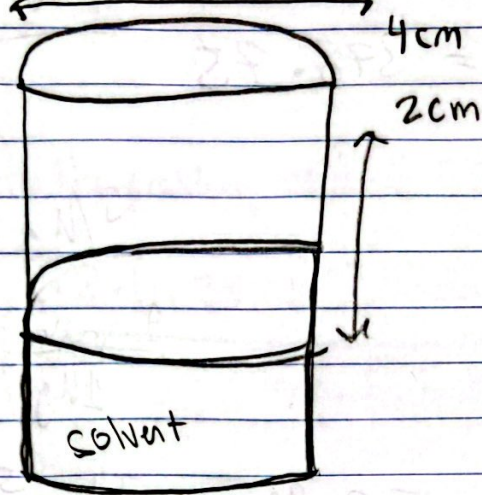 4cm
2cm
solvent